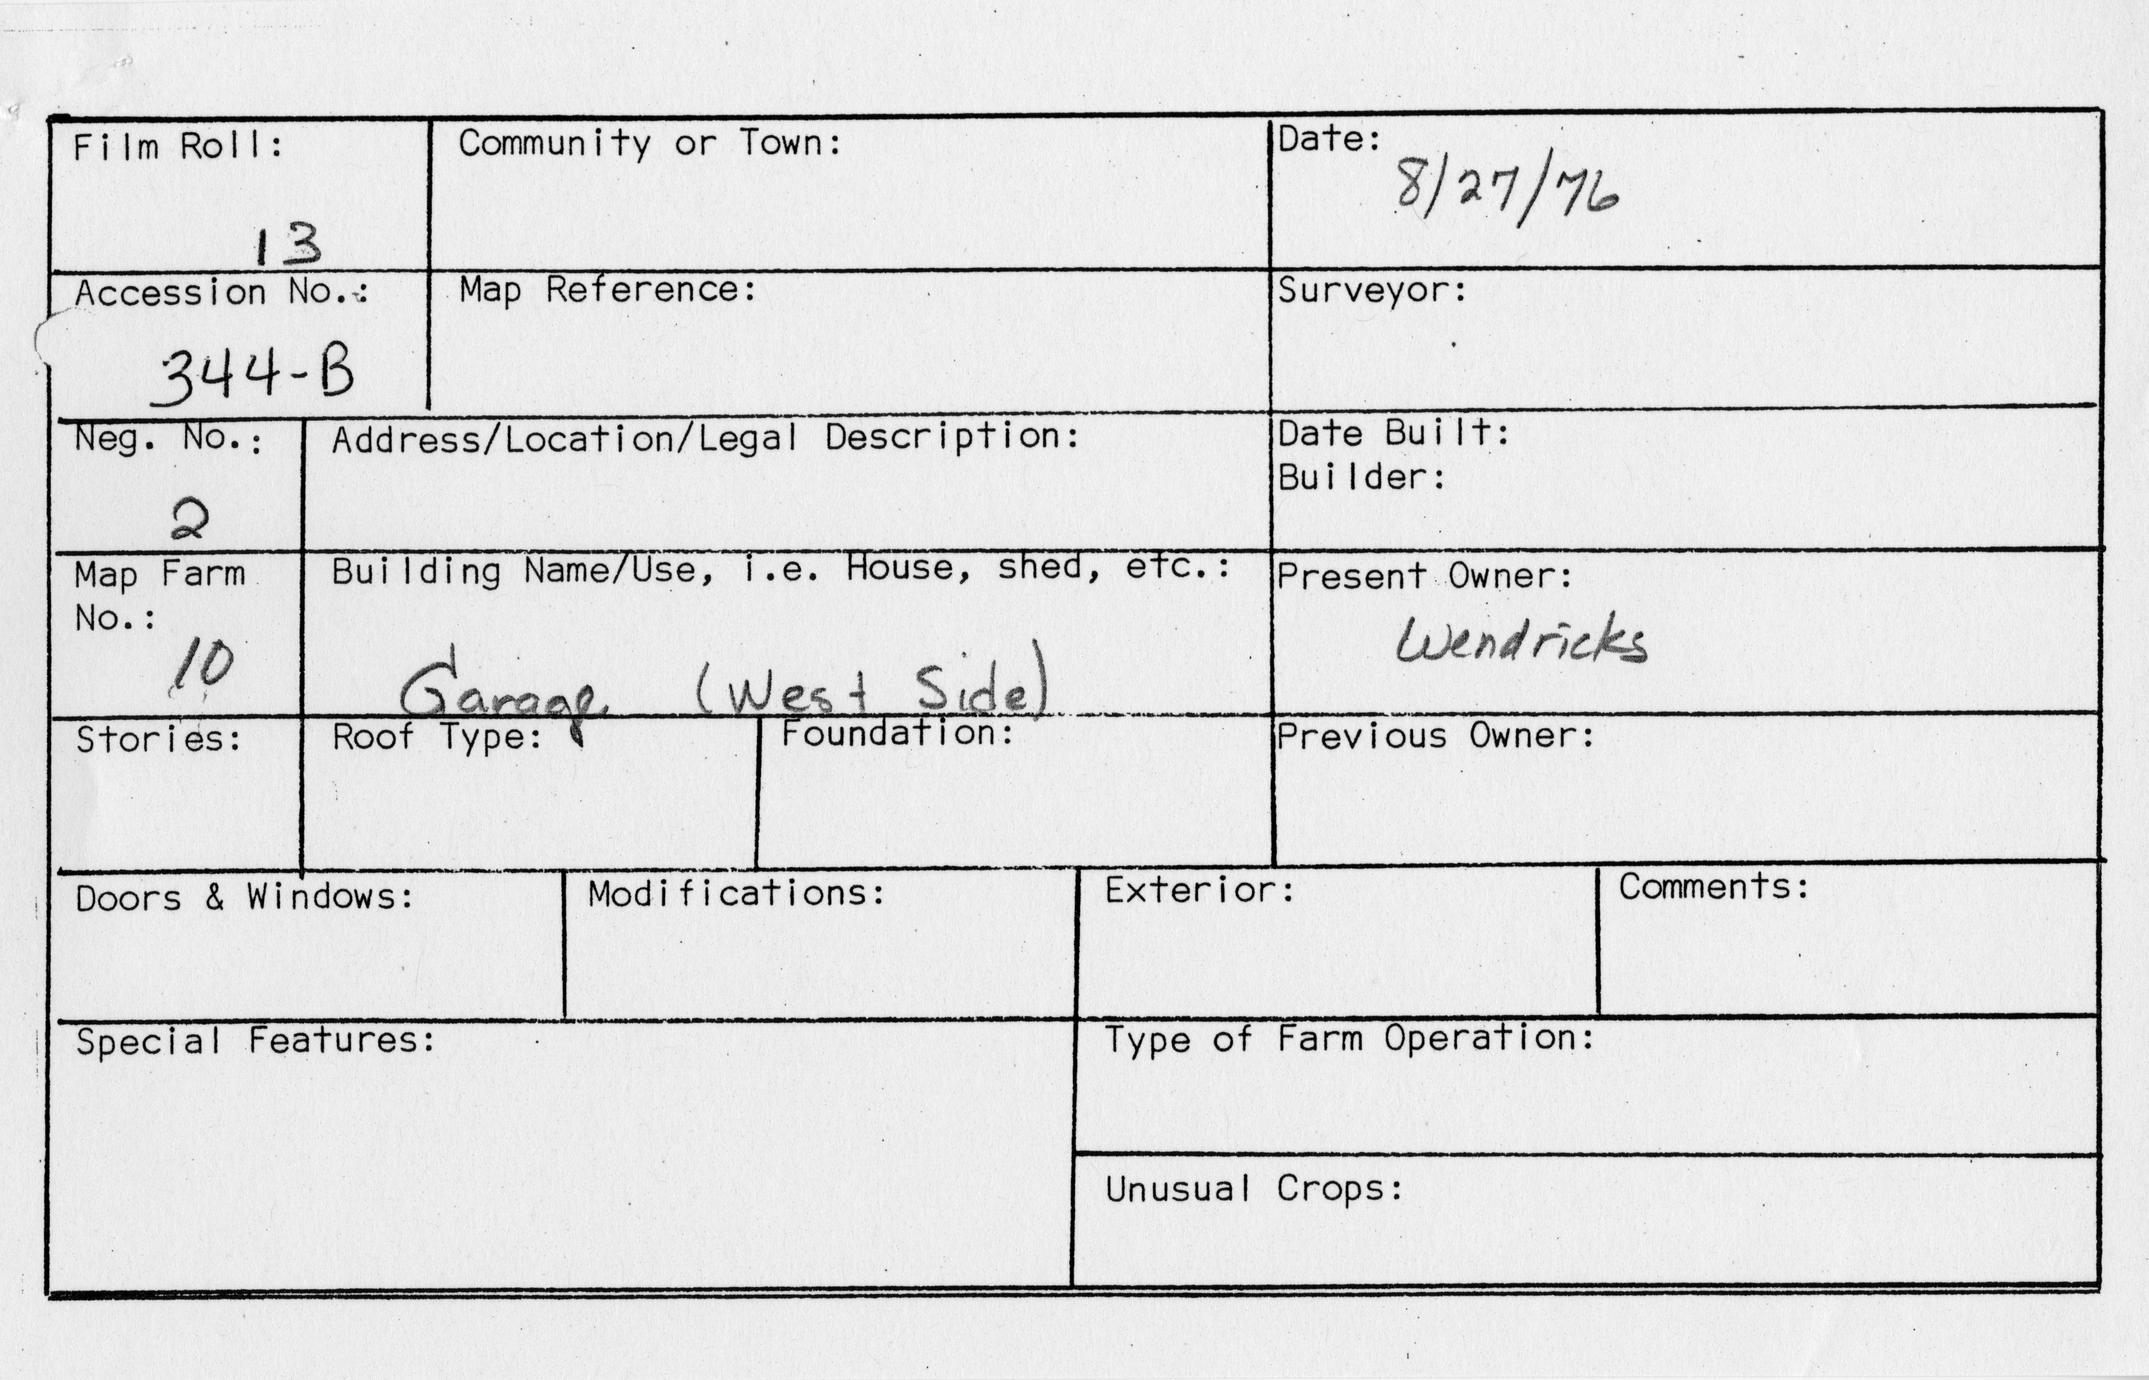 Film Roll:
13
Community or Town:
Date:
8/27/76
Accession No.:
344-B
Map Reference:
Surveyor:
Neg. No.:
2
Address/Location/Legal Description:
Date Built:
Builder:
Map Farm
No.:
10
Building Name/Use, i.e. House, shed, etc.:
Garage (West Side)
Present Owner:
Wendricks
Stories:
Roof Type:
Foundation:
Previous Owner:
Doors & Windows:
Modifications:
Exterior:
Comments:
Special Features:
Type of Farm Operation:
Unusual Crops: